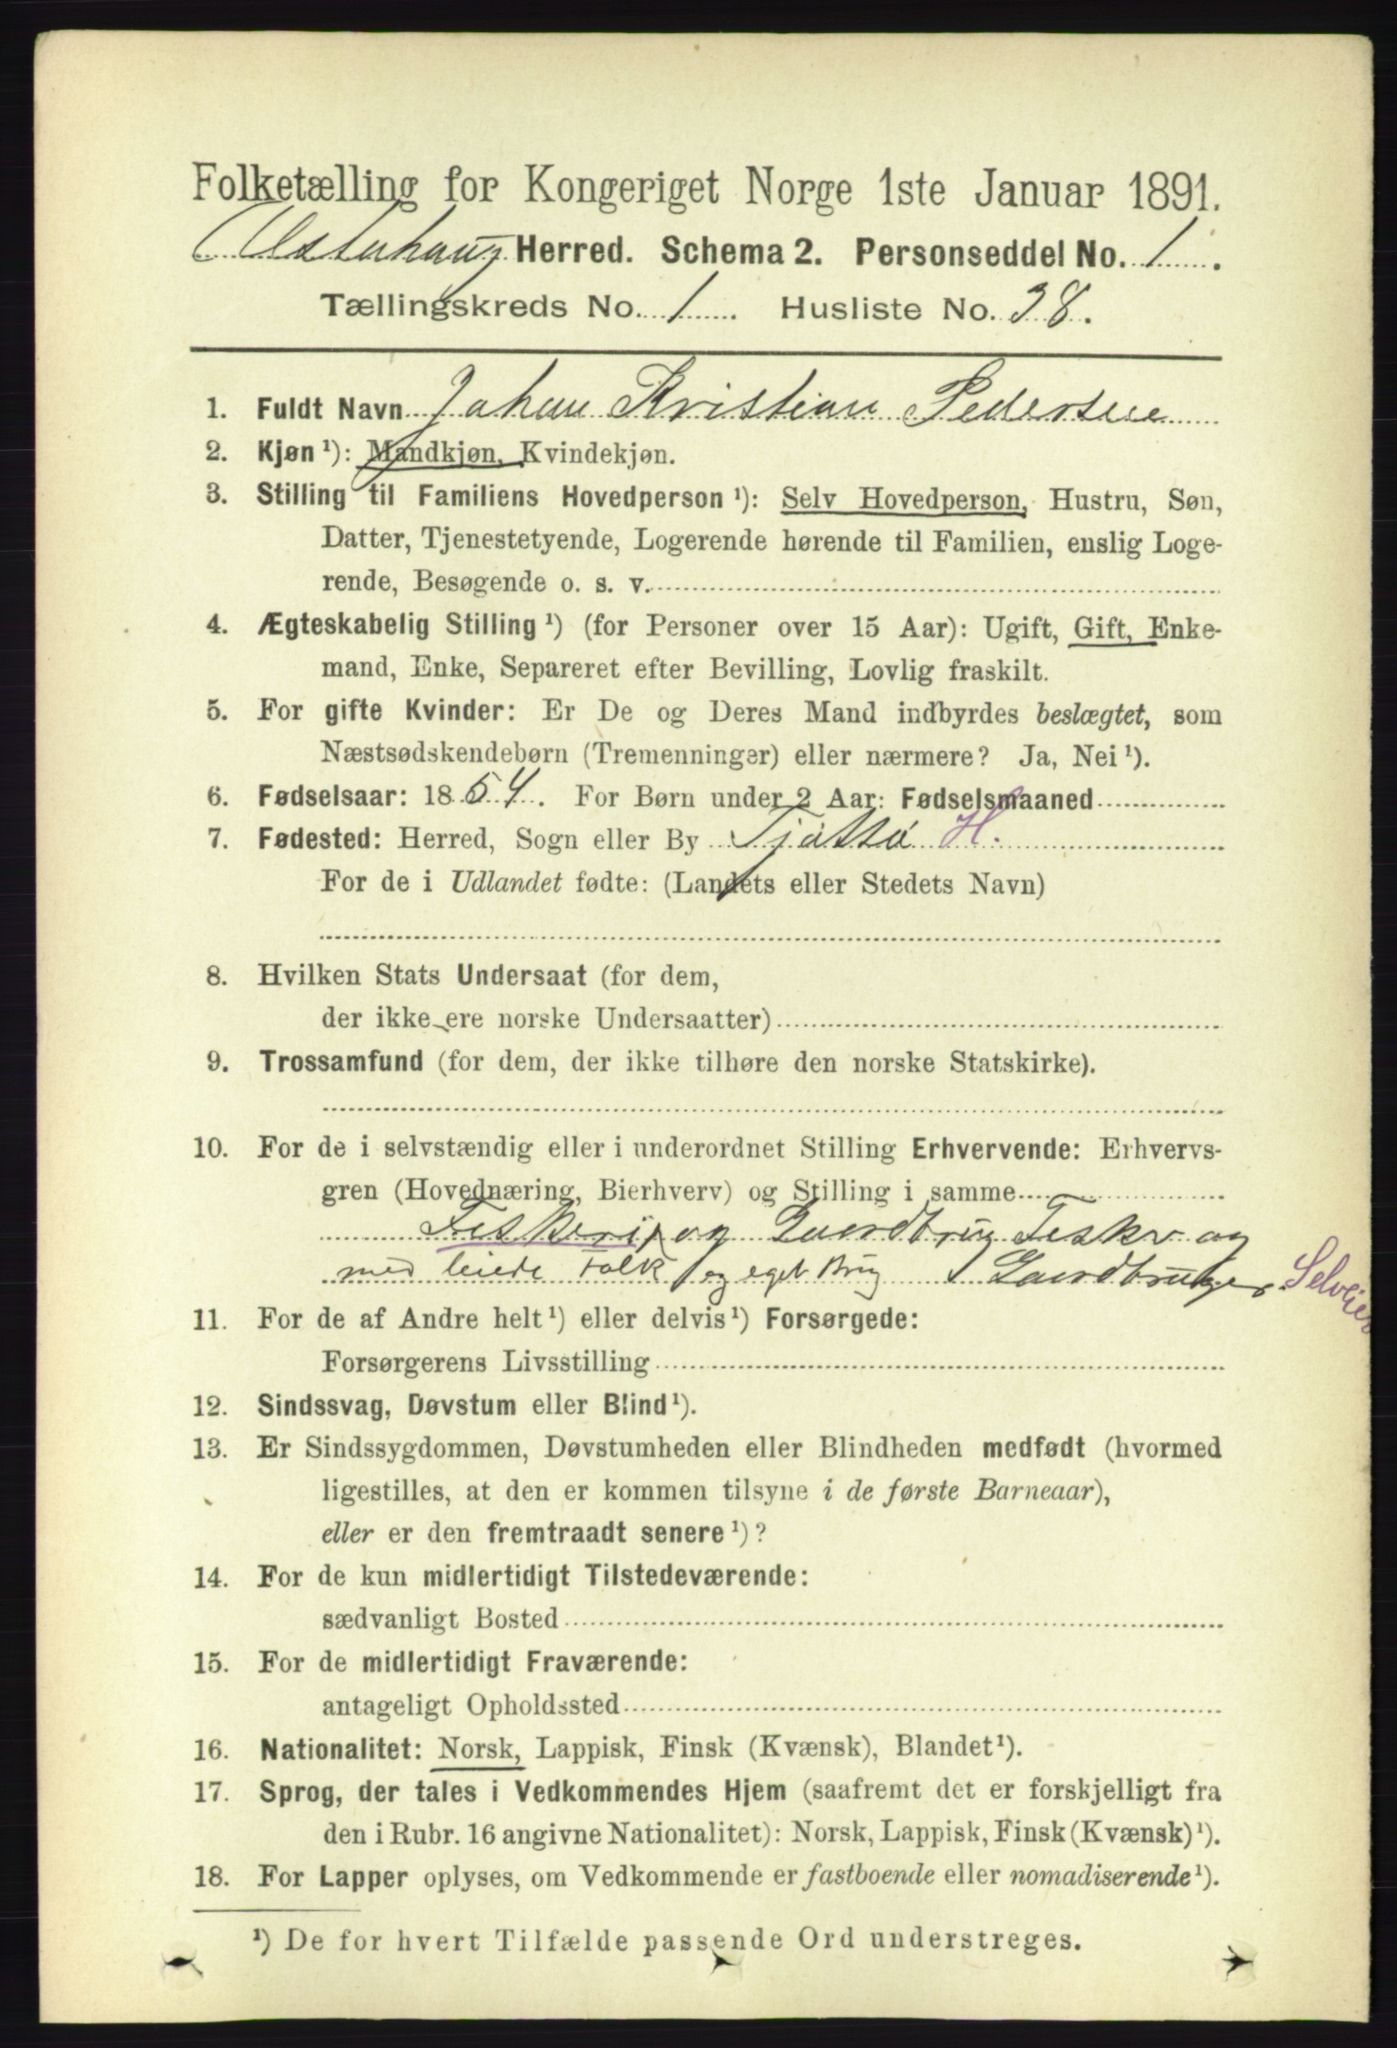 Folketælling for Kongeriget Norge 1ste Januar 1891.
Alstahaug Herred. Schema 2. Personseddel No. 1.
Tællingskreds No. 1. Husliste No. 38.
1. Fuldt Navn Johan Kristian Pedersen
2. Kjøn ¹): Mandkjøn, Kvindekjøn.
3. Stilling til Familiens Hovedperson ¹): Selv Hovedperson, Hustru, Søn,
Datter, Tjenestetyende, Logerende hørende til Familien, enslig Loge-
rende, Besøgende o. s. v.
4. Ægteskabelig Stilling ¹) (for Personer over 15 Aar): Ugift, Gift, Enke-
mand, Enke, Separeret efter Bevilling, Lovlig fraskilt.
5. For gifte Kvinder: Er De og Deres Mand indbyrdes beslægtet, som
Næstsødskendebørn (Tremenninger) eller nærmere? Ja, Nei ¹).
6. Fødselsaar: 1854. For Børn under 2 Aar: Fødselsmaaned
7. Fødested: Herred, Sogn eller By Tjøttø H.
For de i Udlandet fødte: (Landets eller Stedets Navn)
8. Hvilken Stats Undersaat (for dem,
der ikke ere norske Undersaatter)
9. Trossamfund (for dem, der ikke tilhøre den norske Statskirke).
10. For de i selvstændig eller i underordnet Stilling Erhvervende: Erhvervs-
gren (Hovednæring, Bierhverv) og Stilling i samme
Fiskeri og Gaardbrug Fisker og
med leiede Folk og eget Brug Gaardbruger Selveier
11. For de af Andre helt ¹) eller delvis ¹) Forsørgede:
Forsørgerens Livsstilling
12. Sindssvag, Døvstum eller Blind ¹).
13. Er Sindssygdommen, Døvstumheden eller Blindheden medfødt (hvormed
ligestilles, at den er kommen tilsyne i de første Barneaar),
eller er den fremtraadt senere ¹)?
14. For de kun midlertidigt Tilstedeværende:
sædvanligt Bosted
15. For de midlertidigt Fraværende:
antageligt Opholdssted
16. Nationalitet: Norsk, Lappisk, Finsk (Kvænsk), Blandet ¹).
17. Sprog, der tales i Vedkommendes Hjem (saafremt det er forskjelligt fra
den i Rubr. 16 angivne Nationalitet): Norsk, Lappisk, Finsk (Kvænsk) ¹).
18. For Lapper oplyses, om Vedkommende er fastboende eller nomadiserende ¹).
¹) De for hvert Tilfælde passende Ord understreges.